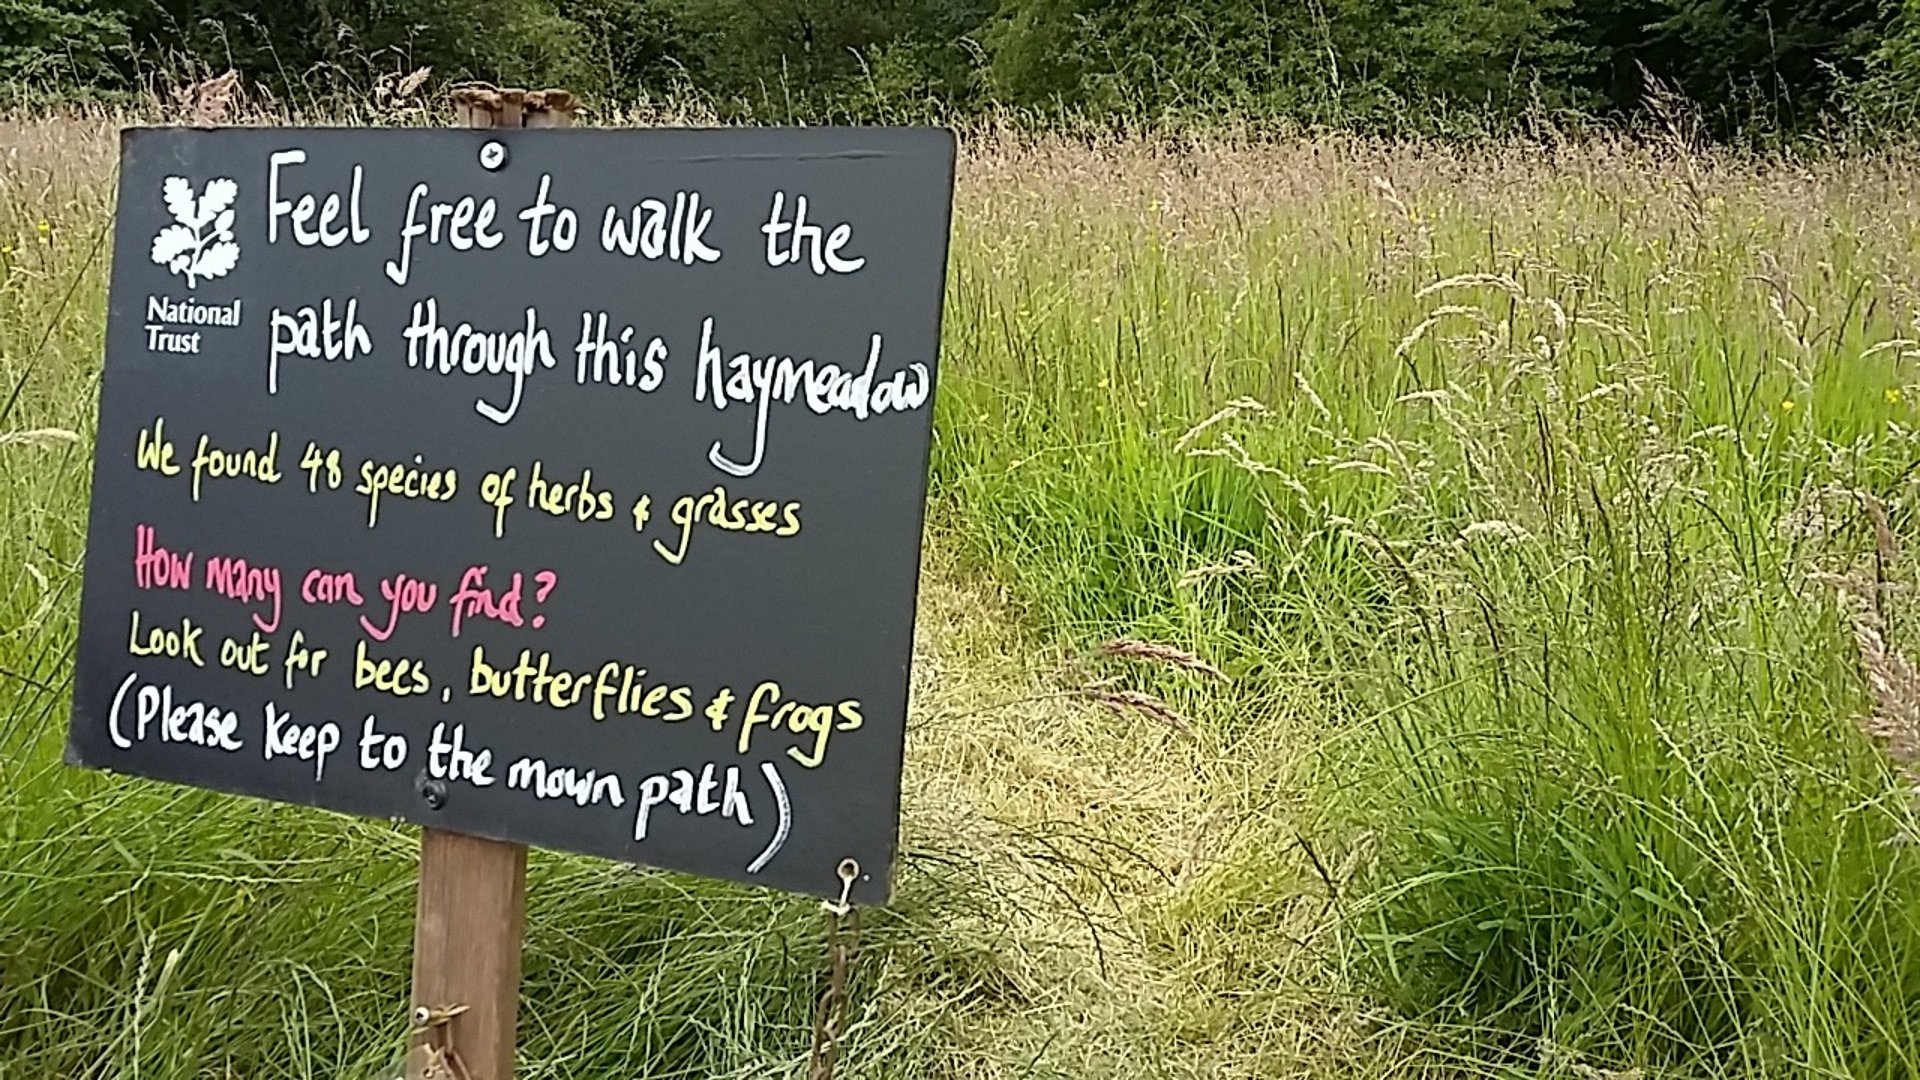 National
Trust
Feel free to walk the
path through this haymeadow
We found 48 species of herbs & grasses
How many can you find?
Look out for bees, butterflies & frogs
(Please keep to the mown path)